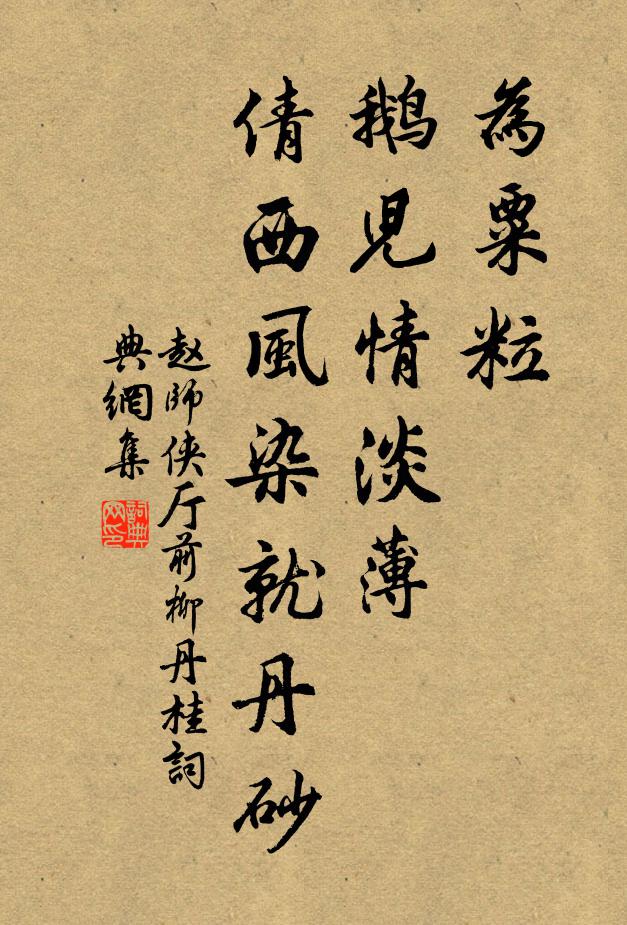 為粟粒
鵝兒情淡薄
倩西風染就丹砂
赵師侠厅前柳丹桂詞
典網集
詞典網印